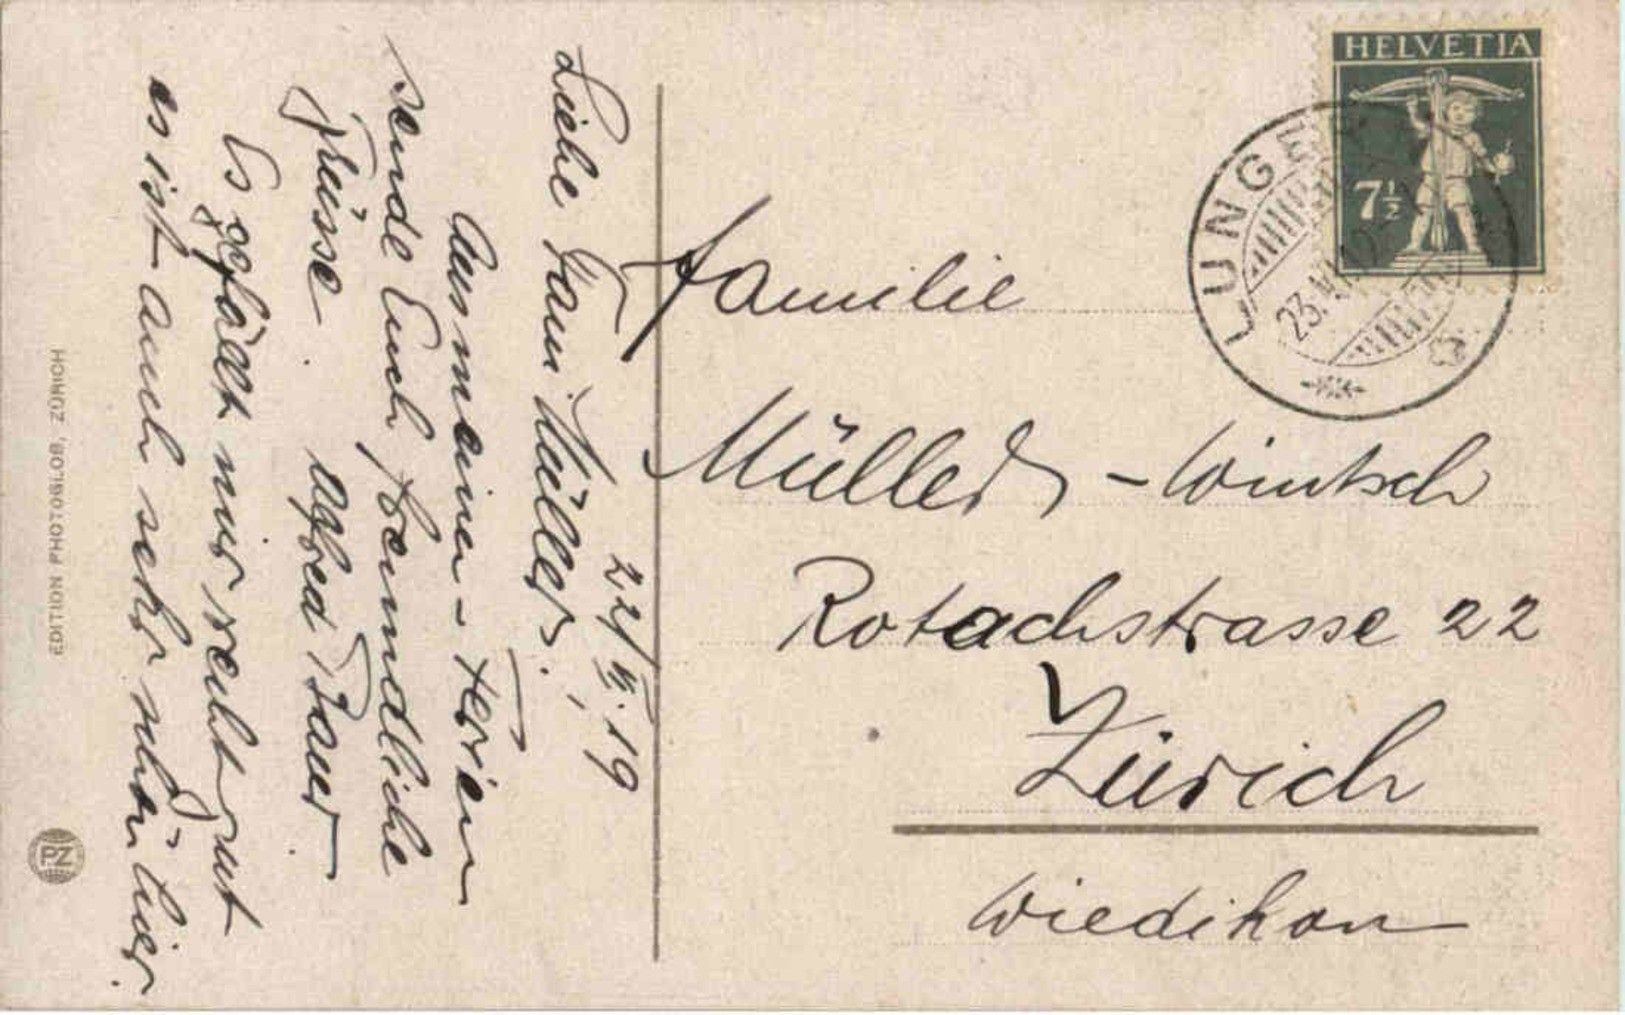 22/VI.19
Liebe Fam. Müller.,
Aus meinen Ferien
sende Euch freundliche
Grüsse.
Alfred Bauer
Es gefällt mir recht gut
es ist auch sehr schön hier.
EDITION PHOTOGLOB, ZÜRICH
PZ
HELVETIA
7½
LUNGERN
23.
Familie
Müller-Wintsch
Rotachstrasse 22
Zürich
Wiedikon